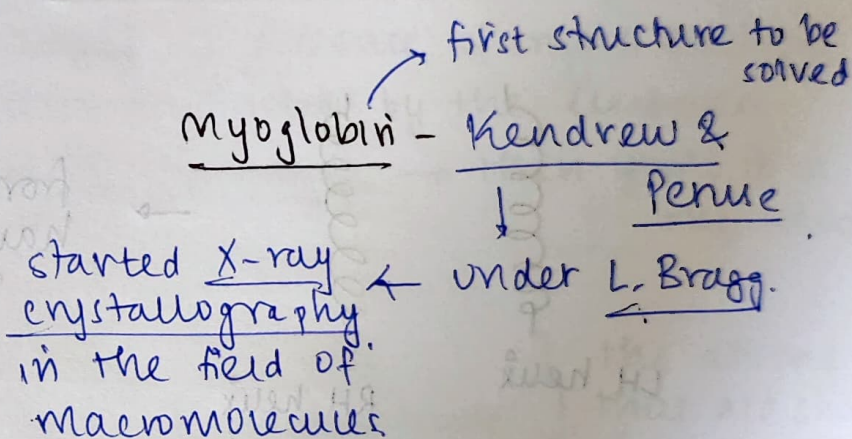 first structure to be
solved
Myoglobin - Kendrew &
Penue
started X-ray ← under L. Bragg.
crystallography
in the field of
macromolecules